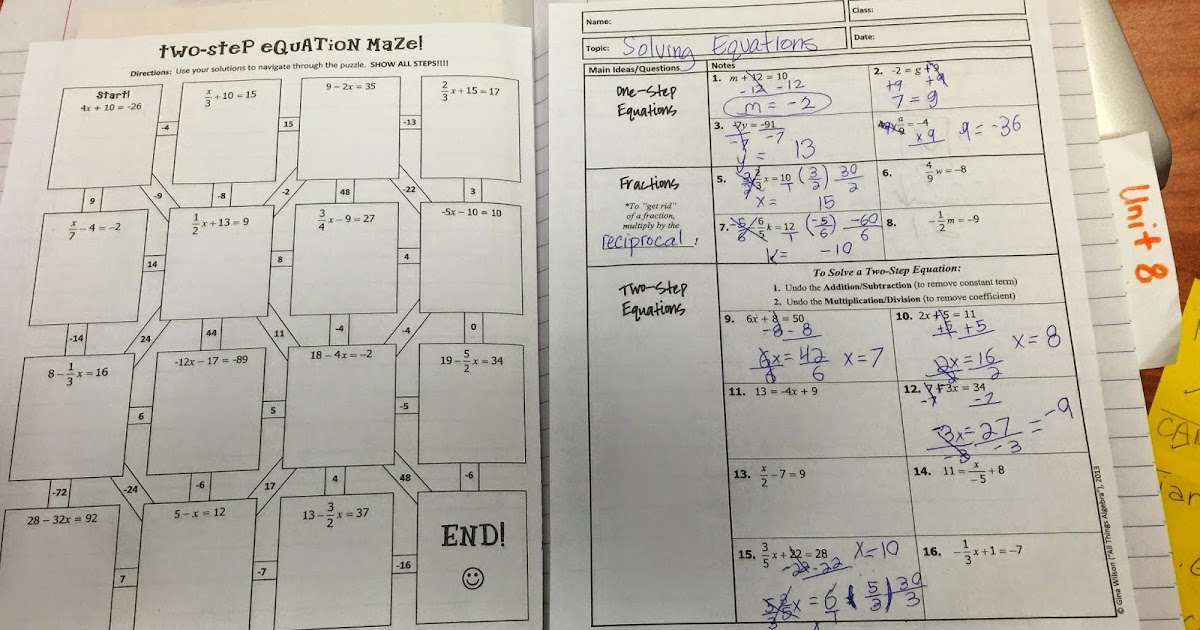 TWO-STEP EQUATION MAZE!
Directions: Use your solutions to navigate through the puzzle. SHOW ALL STEPS!!!!
Start!
4x + 10 = -26
-4
x/3 + 10 = 15
15
9 – 2x = 35
-13
2/3 x + 15 = 17
9
-9
-8
-2
48
-22
3
x/7 – 4 = –2
14
1/2 x + 13 = 9
8
3/4 x – 9 = 27
4
-5x – 10 = 10
-14
24
44
11
-4
-4
0
8 – 1/3 x = 16
6
-12x – 17 = -89
5
18 – 4x = –2
-5
19 – 5/2 x = 34
-72
-24
-6
17
4
48
-6
28 – 32x = 92
7
5 – x = 12
-7
13 – 3/2 x = 37
-16
END!
Name:
Class:
Topic: Solving Equations
Date:
Main Ideas/Questions
Notes
One-Step
Equations
1. m + 12 = 10
-12 -12
m = -2
2. -2 = g + 9
+9 +9
7 = g
3. -7y = -91
-7 -7
y = 13
= -4
x 9
9 = -36
Fractions
*To "get rid"
of a fraction,
multiply by the
reciprocal!
5. 2/3 x = 10/1 (3/2) 30/2
x = 15
6. 4/9 w = –8
7. -6/5 k = 12/1 (-5/6) -60/6
k = -10
8. -1/2 m = –9
Two-Step
Equations
To Solve a Two-Step Equation:
1. Undo the Addition/Subtraction (to remove constant term)
2. Undo the Multiplication/Division (to remove coefficient)
9. 6x + 8 = 50
-8 - 8
6x = 42
6 6
x = 7
10. 2x - 5 = 11
+5 +5
2x = 16
2 2
x = 8
11. 13 = -4x + 9
12. 7 - 3x = 34
-7 -7
-3x = 27 = -9
-3 -3
13. x/2 – 7 = 9
14. 11 = x/-5 + 8
15. 3/5 x + 22 = 28
-22 -22
x = 10
x = 6/1 (5/3) 30/3
16. -1/3 x + 1 = –7
© Gina Wilson ("All Things Algebra"), 2013
Unit 8